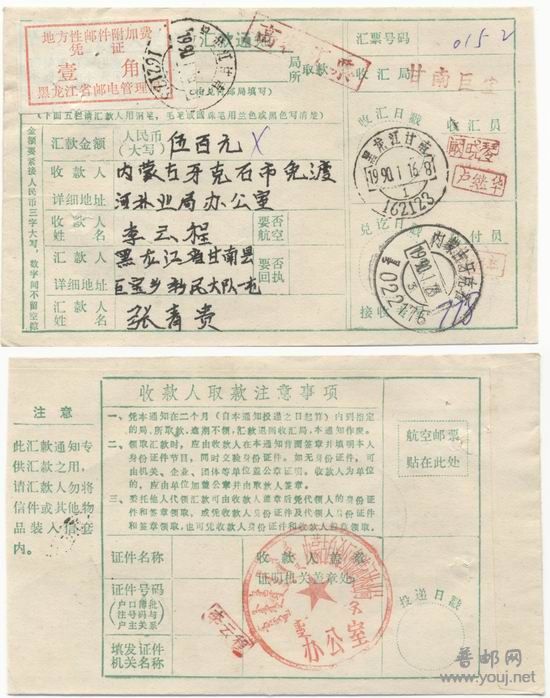 地方性邮件附加费
凭 证
壹 角
黑龙江省邮电管理
汇款通知
局
所 取款
汇票号码
0152
收汇局
甘南巨
(下面五栏请汇款人用钢笔,毛笔或圆珠笔用兰色或黑色写清楚)
金额要紧接人民币三字大写,数字间不留空隙
汇款金额
人民币
(大写)
伍百元
收汇日戳
收汇员
黑龙江甘南
1990.1.16.8
162123
卢继华
收款人
详细地址
内蒙古牙克石市免渡
河林业局办公室
收款人
姓 名
李云程
要否
航空
兑讫日戳
付 员
汇款人
详细地址
黑龙江省甘南县
巨宝乡新民大队
要否
回执
1990.1.23
022176
汇款人
姓 名
张青贵
接收
778
收款人取款注意事项
注 意
此汇款通知专
供汇款之用,
请汇款人勿将
信件或其他物
品装入信套
内。
一、凭本通知在二个月(自本通知投递之日起算)内到指定
的局、所取款,逾期不领,汇款退回收汇局,本通知作废。
二、领取汇款时,应由收款人在本通知背面签章并填明本人
身份证件节目,同时交验身份证件。如无身份证件,可
由机关、企业、团体等单位盖公章证明。收款人为单位
的,应由单位加盖公章并由取款人签章。
三、委托他人代领汇款可由收款人盖章后凭代领人的身份证
件和签章领取,或凭收款人身份证件和代领人身份证件
和签章领取,也可凭收款人身份证件和收款人签章领取。
航空邮票
贴在此处
证件名称
收款人盖章
证明机关盖章处
证件号码
(户口簿批
注号码与
户主关系)
李云程
办公室
投递日戳
填发证件
机关名称
普邮网
www.youj.net